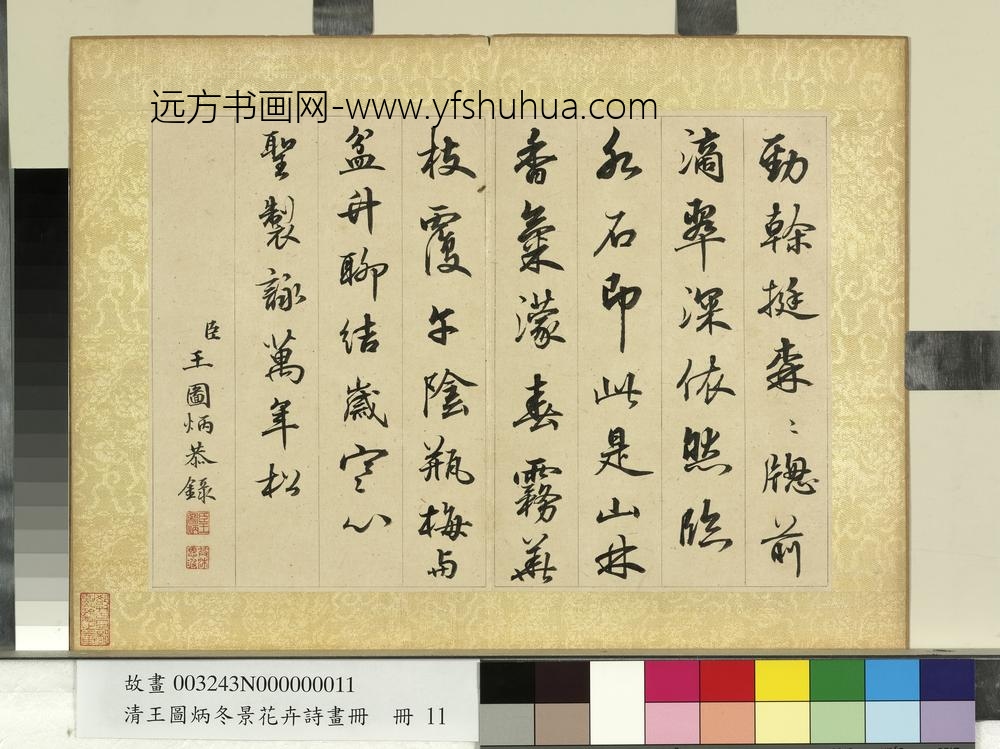 远方书画网-www.yfshuhua.com
勁榦挺森〻牕前
滴翠深依然臨
水石即此是山林
香氣濛春霧華
枝覆午陰瓶梅與
盆升聊結歲寒心
聖製詠萬年松
臣王圖炳恭錄
故畫 003243N000000011
清王圖炳冬景花卉詩畫冊 冊 11